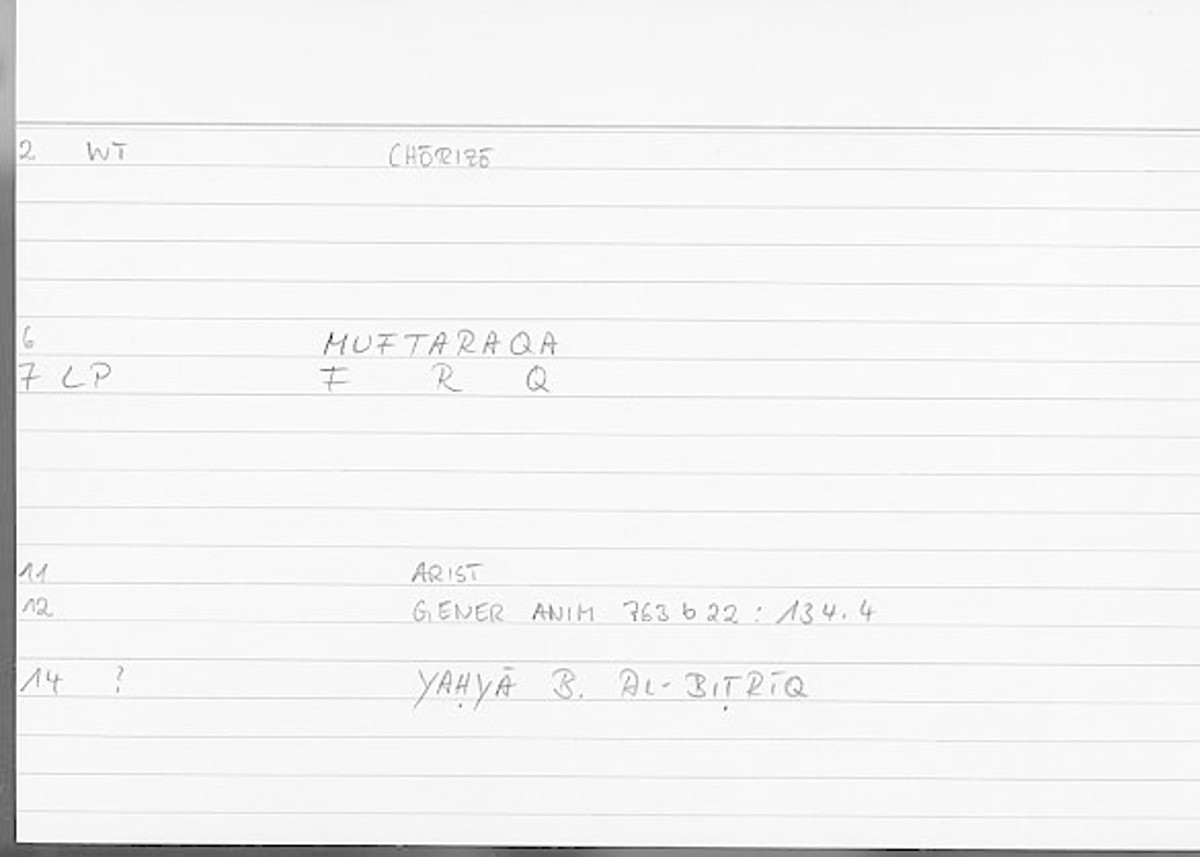 2 WT CHŌRIZŌ
6 MUFTARAQA
7 LP F R Q
11 ARIST
12 GENER ANIM 763 b 22 : 134.4
14 ? YAḤYĀ B. AL-BIṬRĪQ